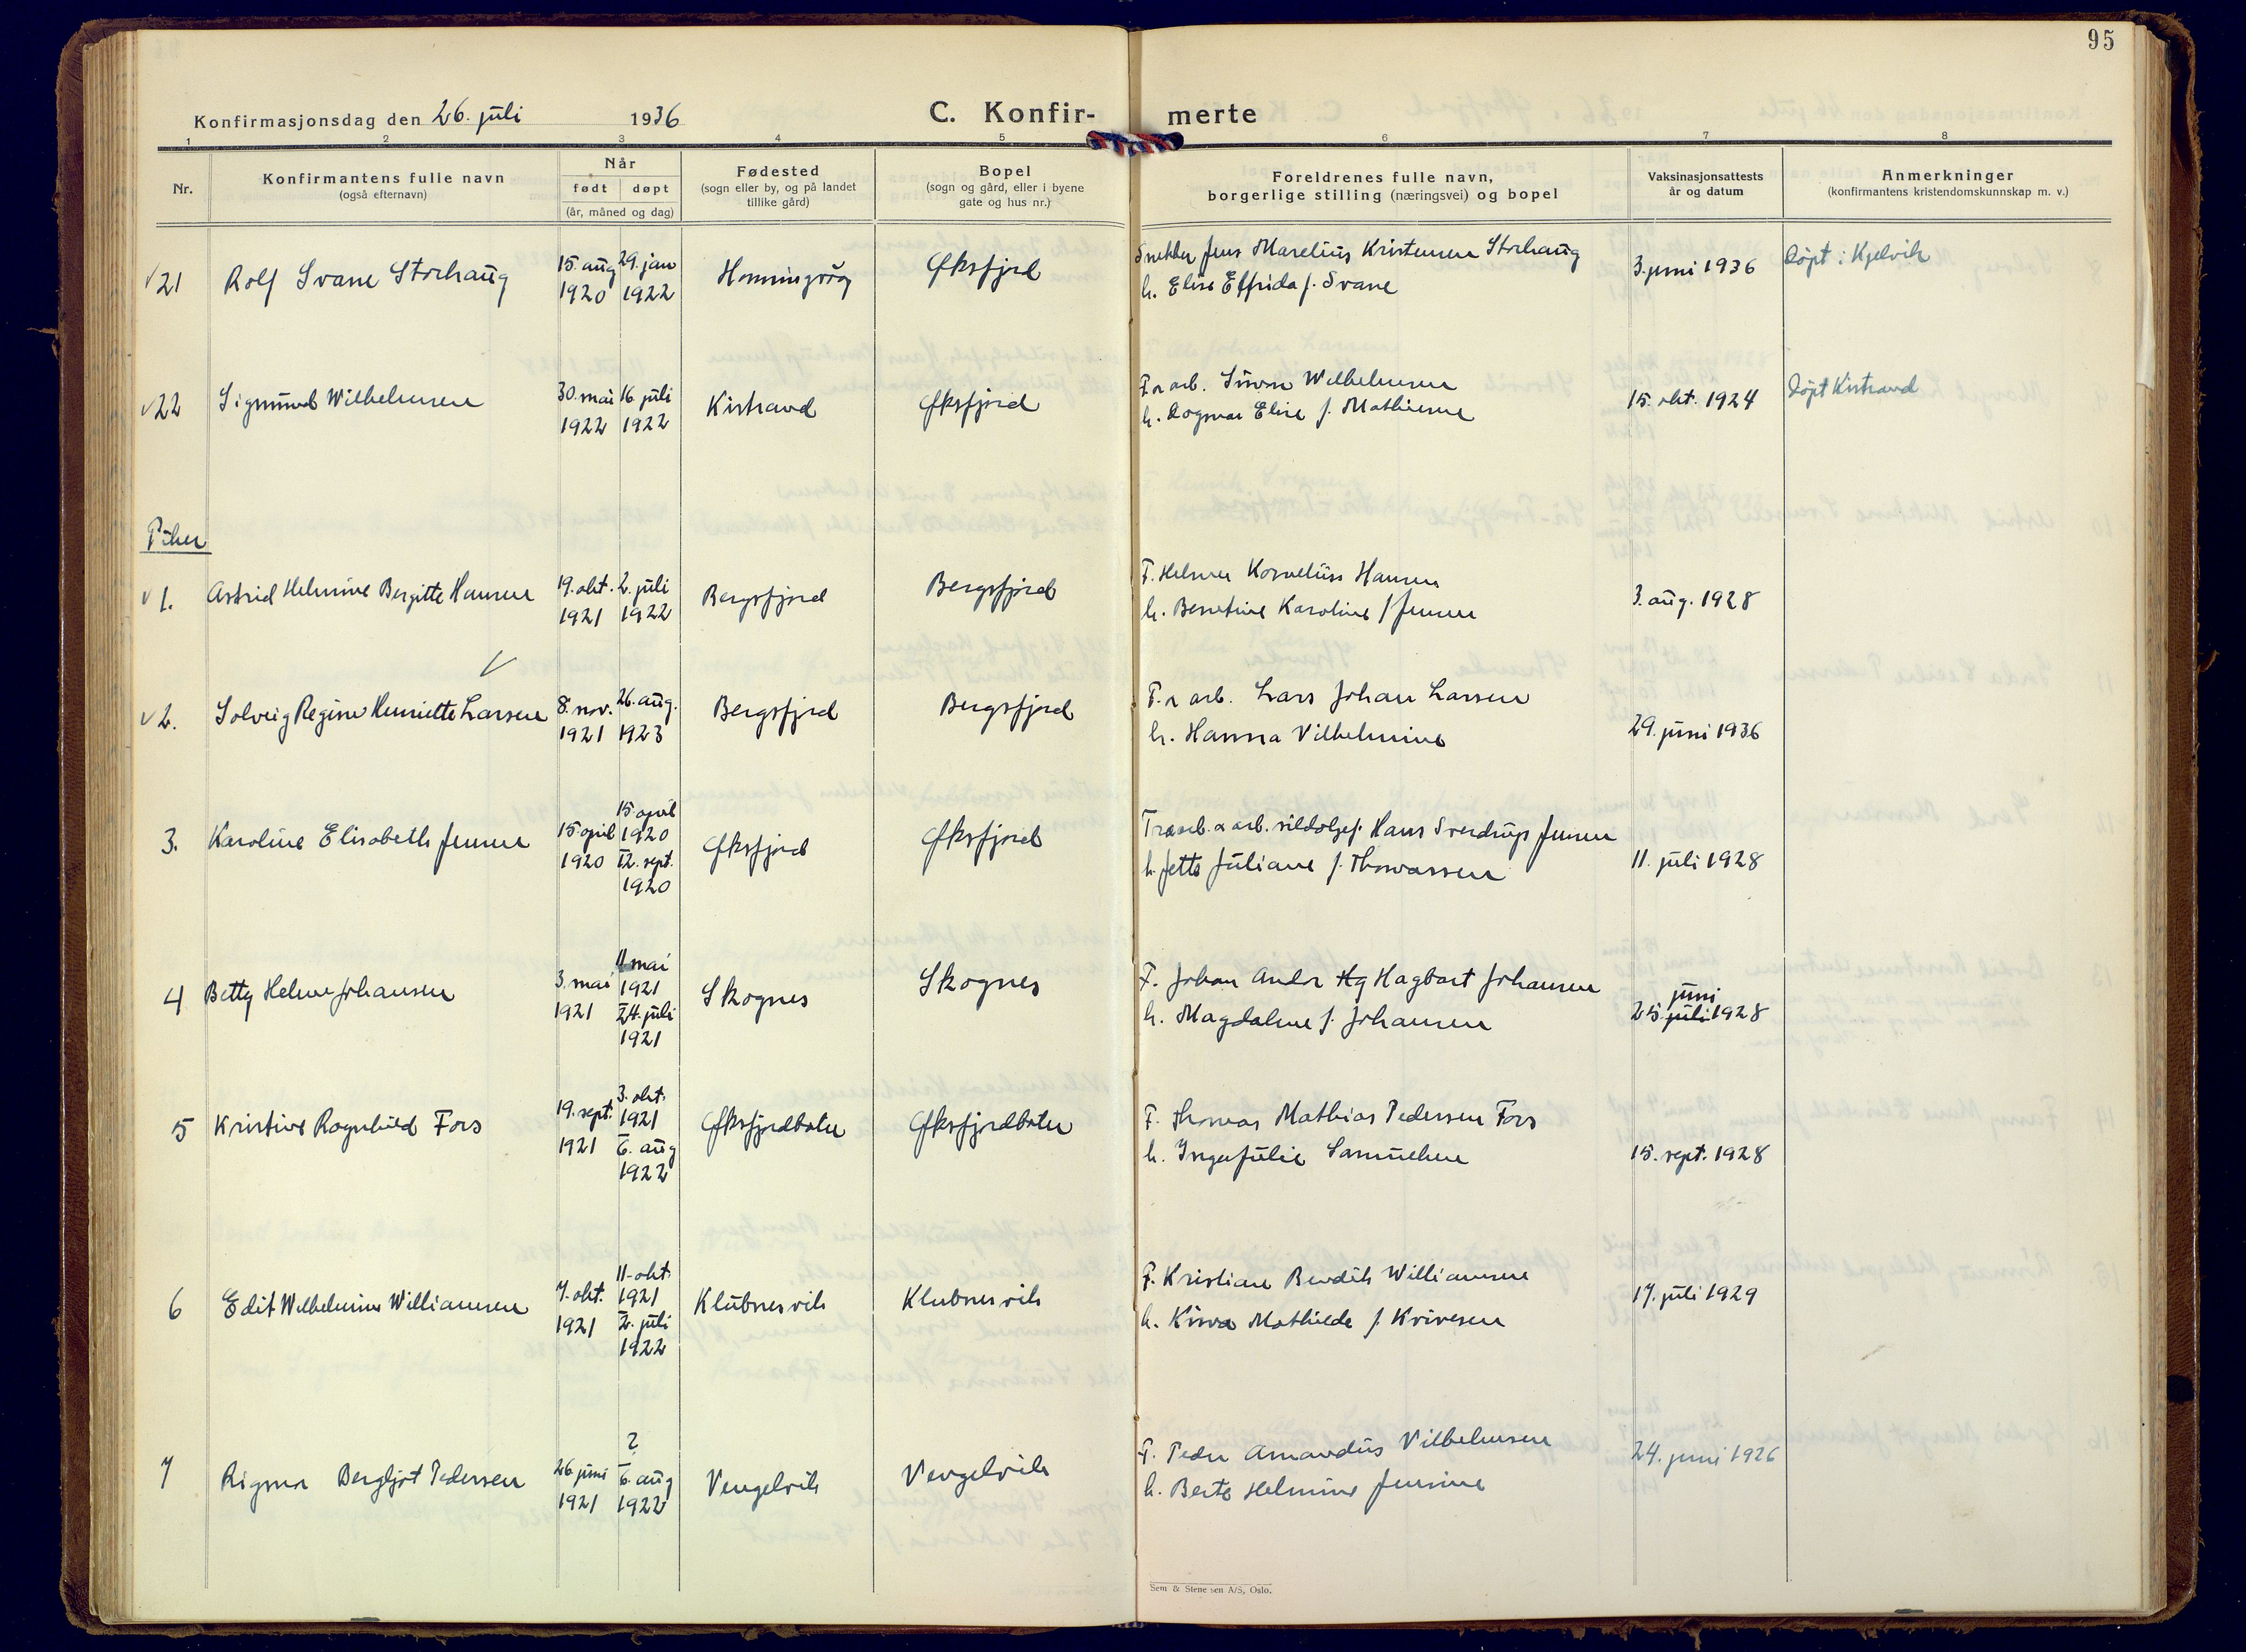 95
Konfirmasjonsdag den 26. juli 1936
C. Konfir-merte
1 2 3 4 5 6 7 8
Nr.
Konfirmantens fulle navn
(også efternavn)
Når
født døpt
(år, måned og dag)
Fødested
(sogn eller by, og på landet
tillike gård)
Bopel
(sogn og gård, eller i byene
gate og hus nr.)
Foreldrenes fulle navn,
borgerlige stilling (næringsvei) og bopel
Vaksinasjonsattests
år og datum
Anmerkninger
(konfirmantens kristendomskunnskap m. v.)
21 Rolf Svane Storhaug 15. aug 1920 29. jan 1922 Honningsvåg Øksfjord
Snekker Jens Marelius Kristensen Storhaug
h. Elise Elfrida f. Svane
3. juni 1936 Døpt i Kjelvik
22 Sigmund Wilhelmsen 30. mai 1922 16 juli 1922 Kistrand Øksfjord
F. a arb. Simon Wilhelmsen
h. Dagmar Elise f. Mathiesen
15. okt. 1924 Døpt Kistrand
Piker
1. Astrid Helmine Bergitte Hansen 19. okt. 1921 2. juli 1922 Bergsfjord Bergsfjord
F. Helmer Kornelius Hansen
h. Berntine Karoline f Jensen
3. aug. 1928
2. Solveig Regine Henriette Larsen 8. nov. 1921 26. aug. 1923 Bergsfjord Bergsfjord
F. a arb. Lars Johan Larsen
h. Hanna Vilhelmine
29. juni 1936
3. Karoline Elisabeth Jensen 15 april 1920 15. april 1920 12. sept. 1920 Øksfjord Øksfjord
Tranarb. a arb. sildoljef. Hans Sverdrup Jensen
h. Jette Juliane f. Thomassen
11. juli 1928
4 Betty Helene Johansen 3. mai 1921 11 mai 1921 24. juli 1921 Skognes Skognes
F. Johan Andor Hg Hagbart Johansen
h. Magdalene f. Johansen
juni
25. juli 1928
5 Kristine Ragnhild Fors 19. sept. 1921 3. okt. 1921 6. aug 1922 Øksfjordbotn Øksfjordbotn
F. Thomas Mathias Pedersen Fors
h. Inga Julie Samuelsen
15. sept. 1928
6 Edit Wilhelmine Williamsen 7. okt. 1921 11. okt. 1921 2. juli 1922 Klubnesvik Klubnesvik
F. Kristian Bendik Williamsen
h. Kinva Mathilde f. Krivesen
17. juli 1929
7 Rigmor Bergljot Pedersen 26. juni 1921 ? 6. aug 1922 Vengelvik Vengelvik
F. Peder Amandus Vilhelmsen
h. Berte Helmine Jensine
24. juni 1926
Sem & Stenersen A/S, Oslo.